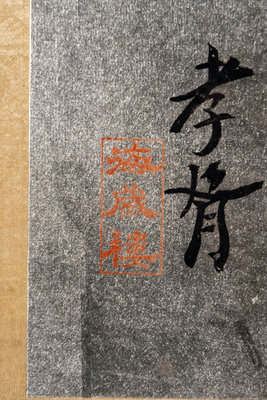 孝胥
海藏樓